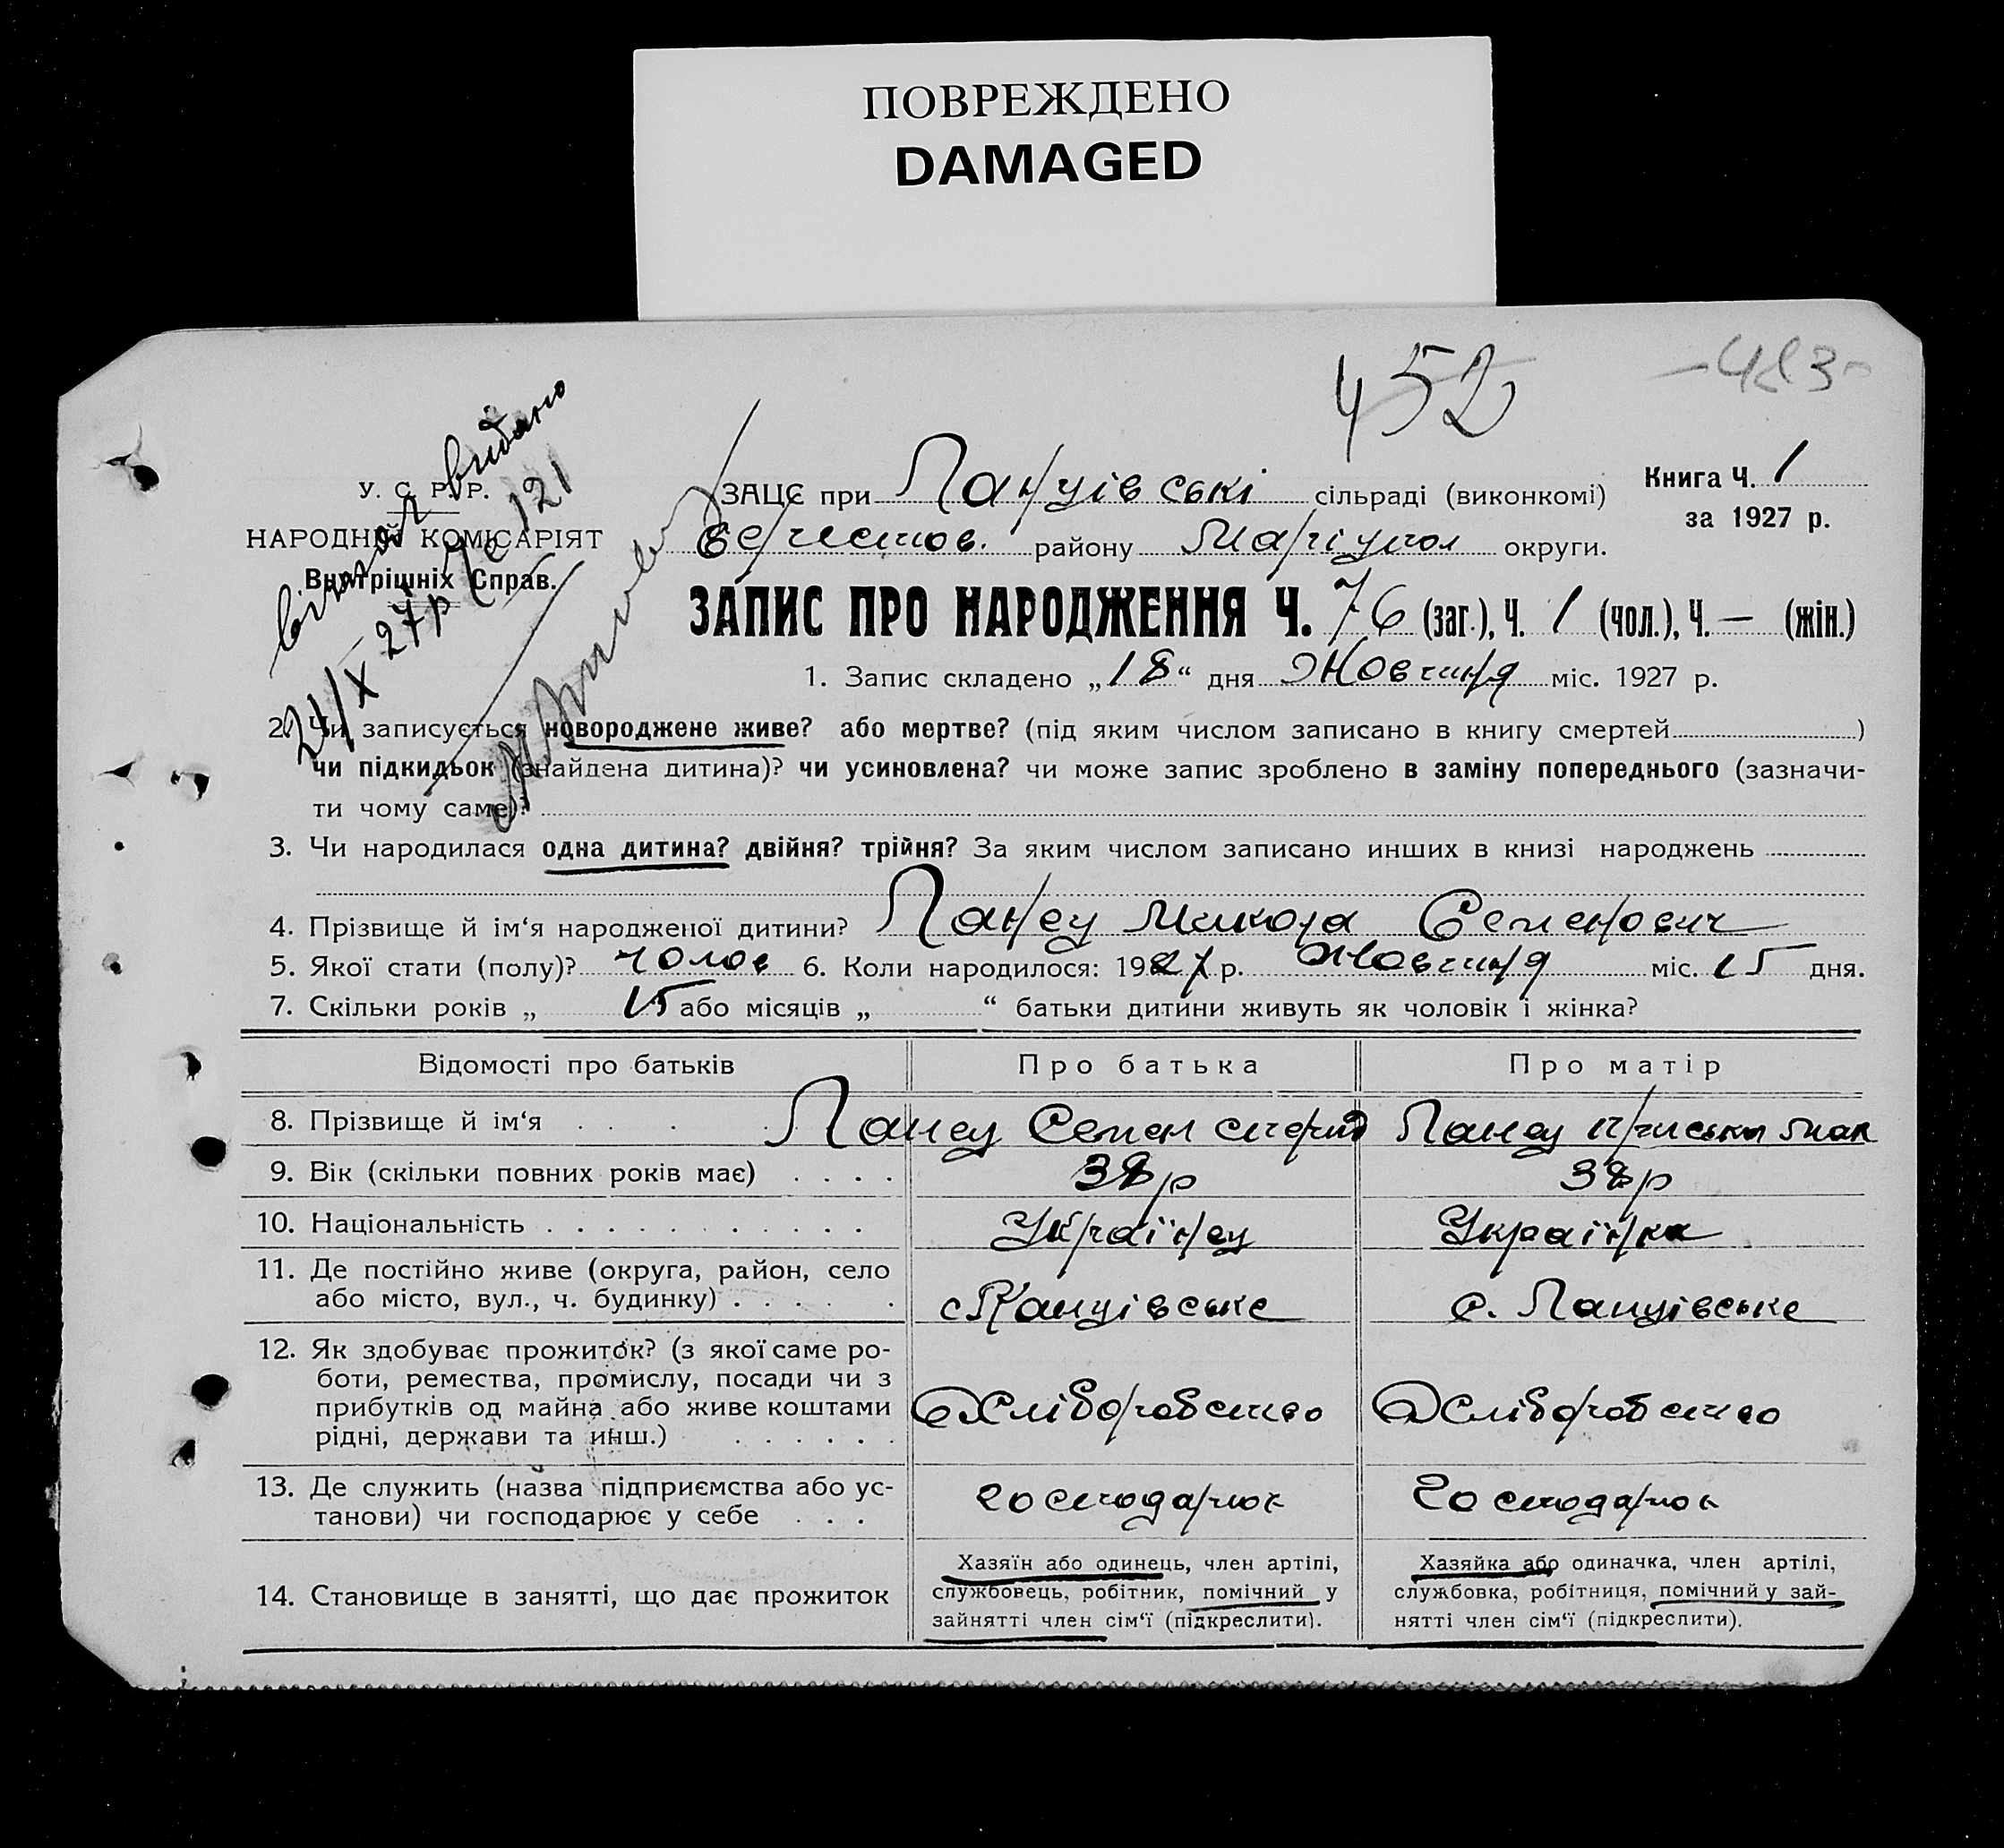 ПОВРЕЖДЕНО
DAMAGED
452
У. С. Р. Р.
НАРОДНІЙ КОМІСАРІЯТ
Внутрішніх Справ.
видано
24/X 27р № 121
ЗАЦС при Ланцівські сільраді (виконкомі)
району Маріупол округи.
Книга Ч. 1
за 1927 р.
ЗАПИС ПРО НАРОДЖЕННЯ Ч. 76 (заг.), Ч. 1 (чол.), Ч. — (жін.)
1. Запис складено „18“ дня Жовтня міс. 1927 р.
2. Чи записується новороджене живе? або мертве? (під яким числом записано в книгу смертей )
чи підкидьок (знайдена дитина)? чи усиновлена? чи може запис зроблено в заміну попереднього (зазначи-
ти чому саме)?
3. Чи народилася одна дитина? двійня? трійня? За яким числом записано инших в книзі народжень
4. Прізвище й ім‘я народженої дитини? Ланец Микола Семенович
5. Якої стати (полу)? чолов 6. Коли народилося: 1927 р. Жовтня міс. 15 дня.
7. Скільки років „ 15 або місяців „ “ батьки дитини живуть як чоловік і жінка?
Відомості про батьків Про батька Про матір
8. Прізвище й ім‘я . . . Ланец Семен Ланец
9. Вік (скільки повних років має) . . . . 38р 38р
10. Національність . . . . . . . . . . . Українец Українка
11. Де постійно живе (округа, район, село
або місто, вул., ч. будинку) . . . . . с Ланцівське с. Ланцівське
12. Як здобуває прожиток? (з якої саме ро-
боти, ремества, промислу, посади чи з
прибутків од майна або живе коштами
рідні, держави та инш.) . . . . . . Хліборобство Хліборобство
13. Де служить (назва підприємства або ус-
танови) чи господарює у себе . . .
14. Становище в занятті, що дає прожиток
Хазяїн або одинець, член артілі,
службовець, робітник, помічний у
зайнятті член сім‘ї (підкреслити).
Хазяйка або одиначка, член артілі,
службовка, робітниця, помічний у зай-
нятті член сім‘ї (підкреслити).